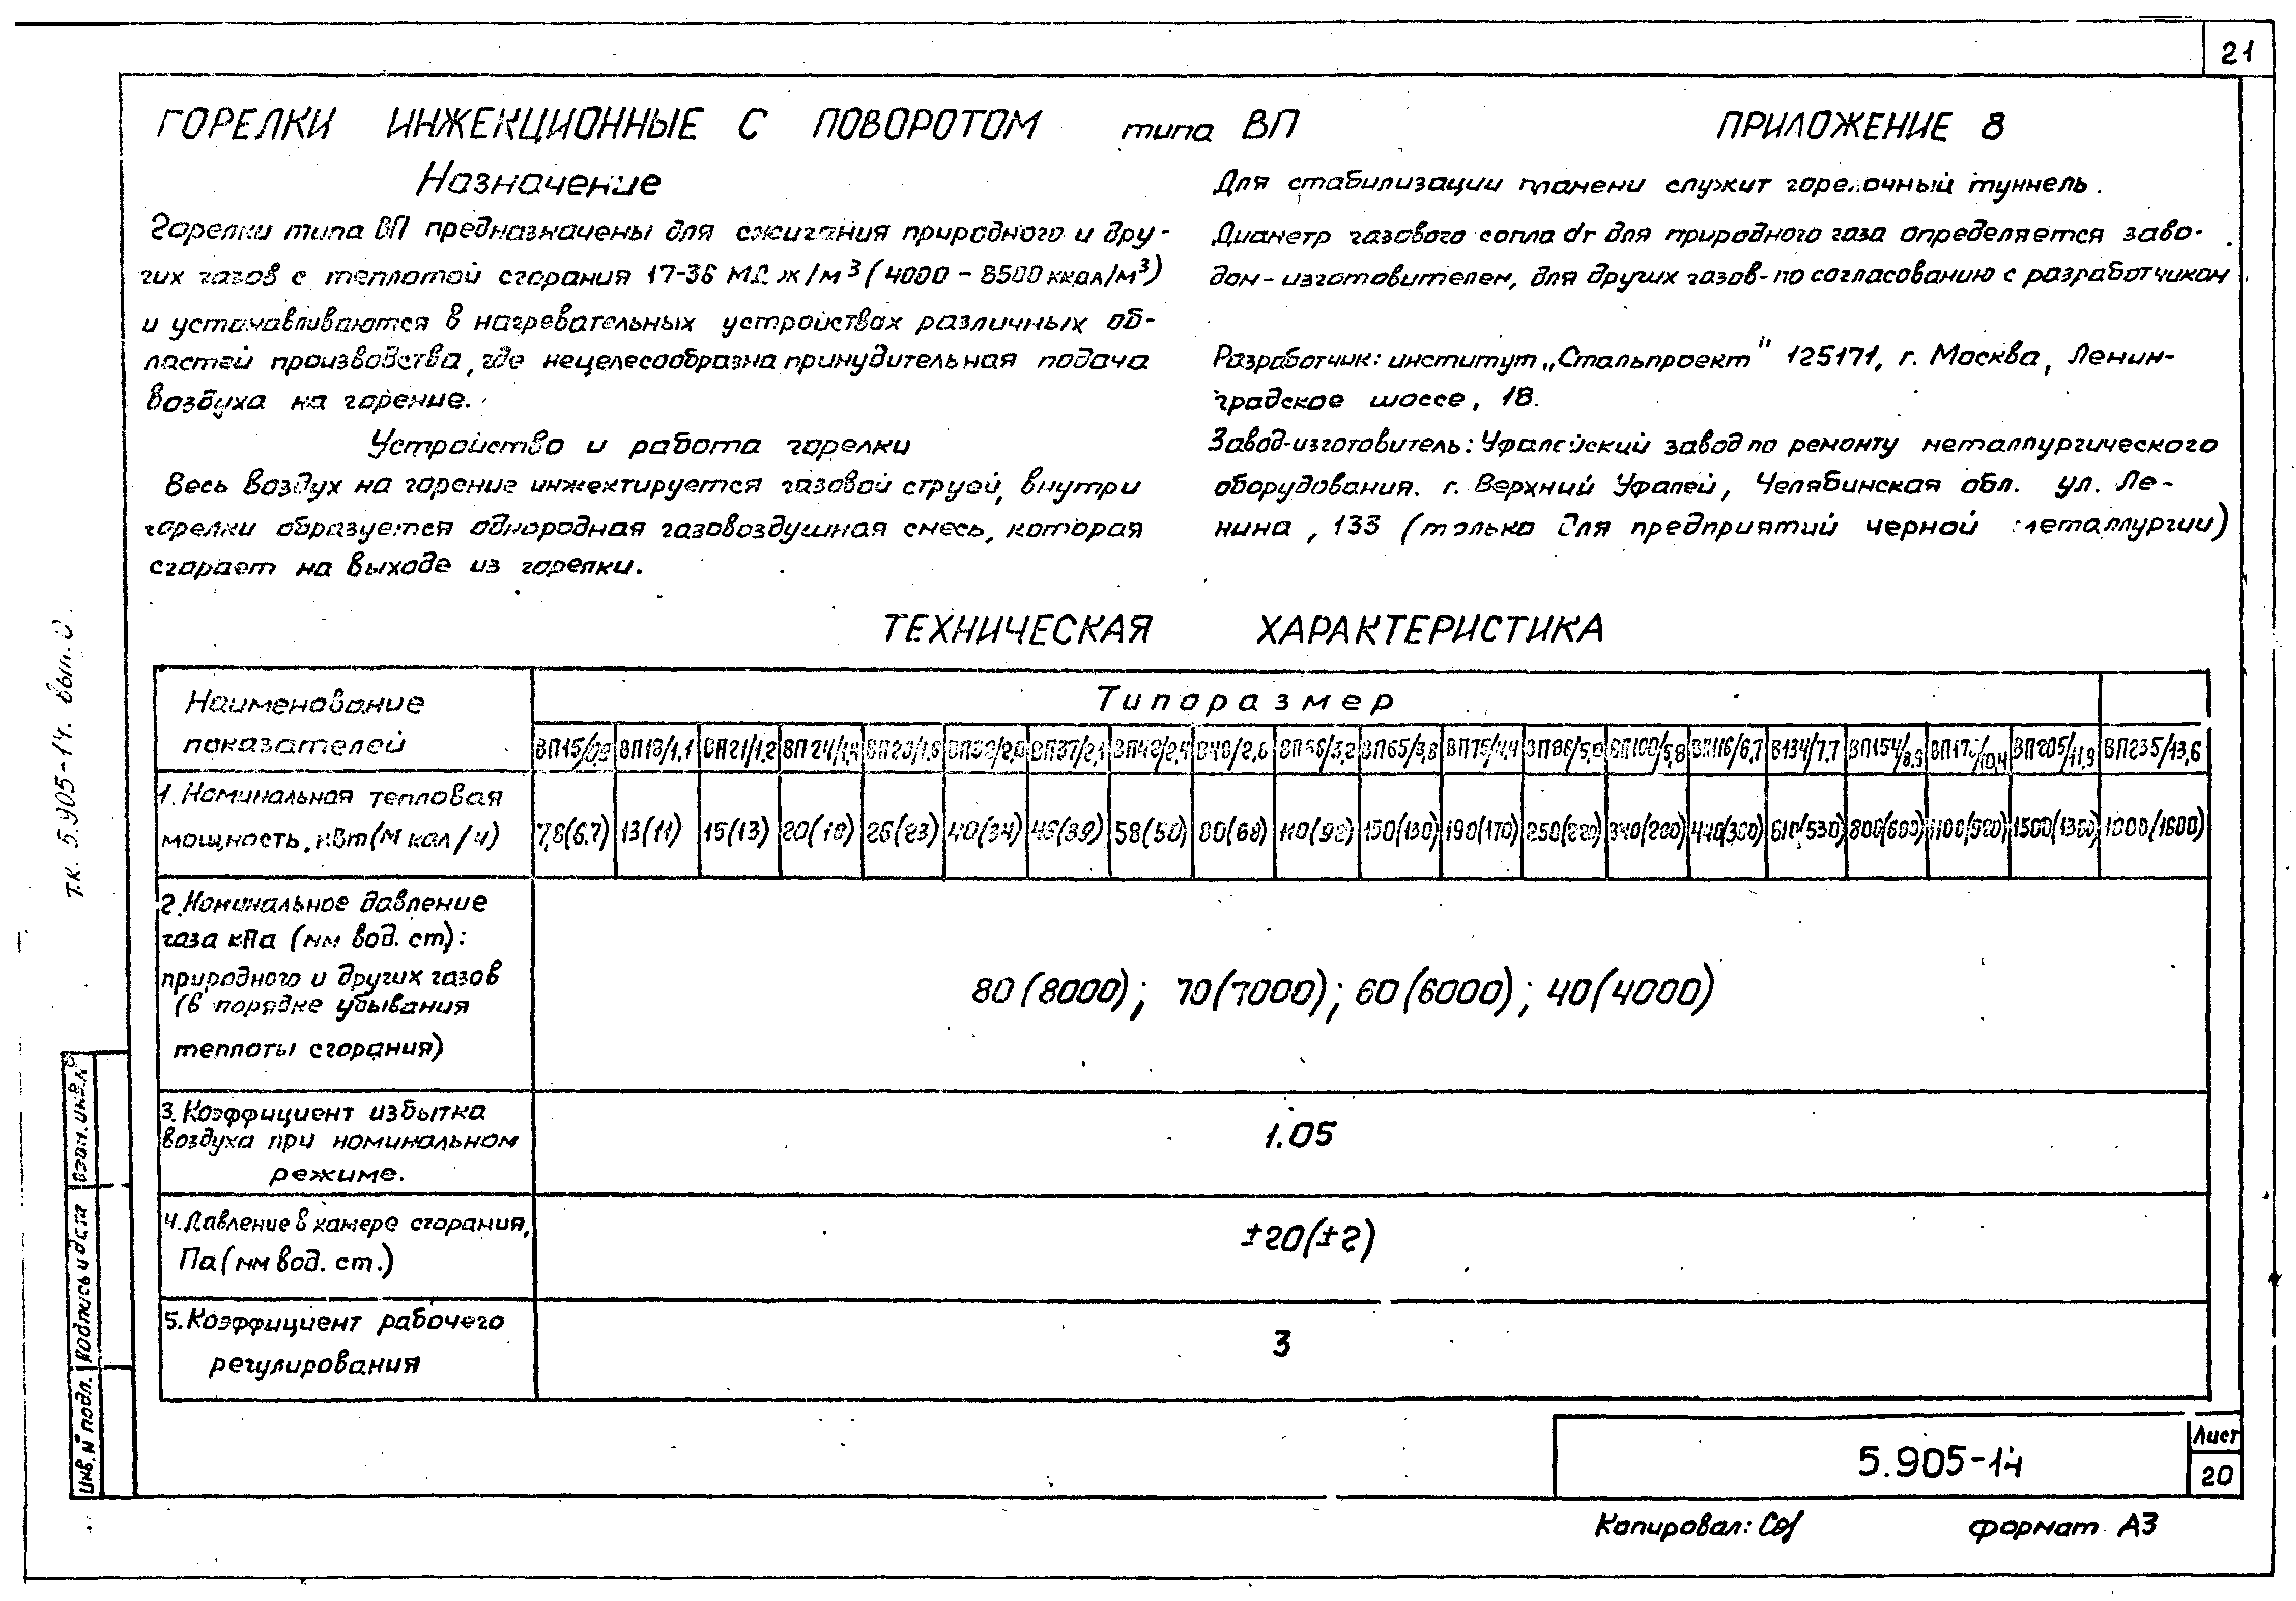 21
ГОРЕЛКИ ИНЖЕКЦИОННЫЕ С ПОВОРОТОМ типа ВП
ПРИЛОЖЕНИЕ 8
Назначение
Горелки типа ВП предназначены для сжигания природного и дру-
гих газов с теплотой сгорания 17-36 МДж/м³ (4000 - 8500 ккал/м³)
и устанавливаются в нагревательных устройствах различных об-
ластей производства, где нецелесообразна принудительная подача
воздуха на горение.
Устройство и работа горелки
Весь воздух на горение инжектируется газовой струей, внутри
горелки образуется однородная газовоздушная смесь, которая
сгорает на выходе из горелки.
Для стабилизации пламени служит горелочный туннель.
Диаметр газового сопла dг для природного газа определяется заво-
дом-изготовителем, для других газов-по согласованию с разработчиком
Разработчик: институт „Стальпроект" 125171, г. Москва, Ленин-
градское шоссе, 18.
Завод-изготовитель: Уфалейский завод по ремонту металлургического
оборудования. г. Верхний Уфалей, Челябинская обл. ул. Ле-
нина, 133 (только для предприятий черной металлургии)
ТЕХНИЧЕСКАЯ ХАРАКТЕРИСТИКА
Наименование показателей
Типоразмер
ВП15/0,9 ВП18/1,1 ВП21/1,2 ВП24/1,4 ВП28/1,6 ВП32/2,0 ВП37/2,1 ВП42/2,4 В48/2,8 ВП56/3,2 ВП65/3,8 ВП75/4,4 ВП86/5,0 ВП100/5,8 ВП116/6,7 В134/7,7 ВП154/8,9 /10,4 ВП205/11,9 ВП235/13,6
1. Номинальная тепловая
мощность, кВт (Мкал/ч)
7,8(6.7) 13(11) 15(13) 20(18) 26(23) 40(34) 45(39) 58(50) 80(68) 110(92) 150(130) 190(170) 250(220) 340(280) 440(380) 610(530) 800(600) 1100(920) 1500(1300) 1800(1600)
2. Номинальное давление
газа кПа (мм вод. ст):
природного и других газов
(в порядке убывания
теплоты сгорания)
80(8000); 70(7000); 60(6000); 40(4000)
3. Коэффициент избытка
воздуха при номинальном
режиме.
1.05
4. Давление в камере сгорания,
Па (мм вод. ст.)
±20(±2)
5. Коэффициент рабочего
регулирования
3
т.к. 5.905-14. вып. 0
Взам. инв. №
Подпись и дата
Инв. № подл.
5.905-14
Лист
20
Копировал:
формат А3